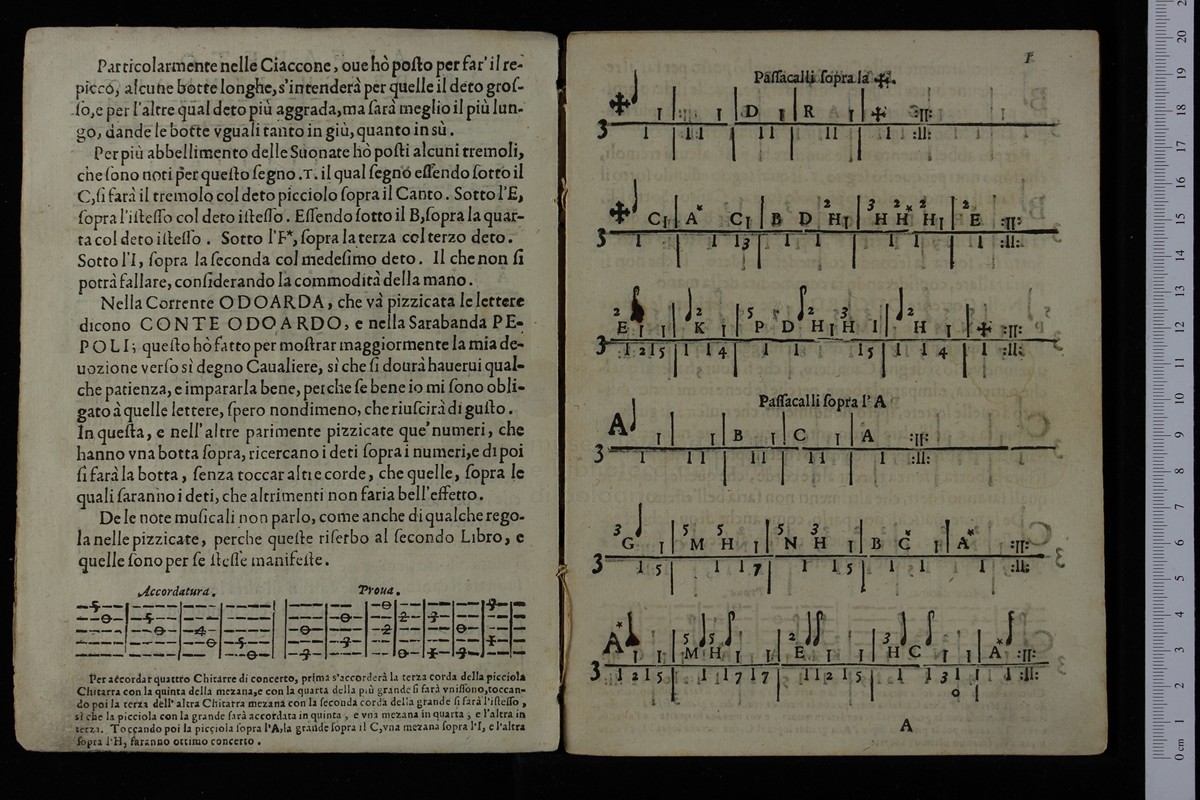 Particolarmente nelle Ciaccone, oue hò posto per far' il re-
picco, alcune botte longhe, s'intenderà per quelle il deto gros-
so, e per l'altre qual deto più aggrada, ma sarà meglio il più lun-
go, dande le botte vguali tanto in giù, quanto in sù.
Per più abbellimento delle Suonate hò posti alcuni tremoli,
che sono noti per questo segno .T. il qual segno essendo sotto il
C, si farà il tremolo col deto picciolo sopra il Canto. Sotto l'E,
sopra l'istesso col deto istesso. Essendo sotto il B, sopra la quar-
ta col deto istesso. Sotto l'F*, sopra la terza col terzo deto.
Sotto l'I, sopra la seconda col medesimo deto. Il che non si
potrà fallare, considerando la commodità della mano.
Nella Corrente ODOARDA, che và pizzicata le lettere
dicono CONTE ODOARDO, e nella Sarabanda PE-
POLI; questo hò fatto per mostrar maggiormente la mia de-
uozione verso sì degno Caualiere, sì che si dourà hauerui qual-
che patienza, e impararla bene, perche se bene io mi sono obli-
gato à quelle lettere, spero nondimeno, che riuscirà di gusto.
In questa, e nell'altre parimente pizzicate que' numeri, che
hanno vna botta sopra, ricercano i deti sopra i numeri, e di poi
si farà la botta, senza toccar altre corde, che quelle, sopra le
quali saranno i deti, che altrimenti non faria bell'effetto.
De le note musicali non parlo, come anche di qualche rego-
la nelle pizzicate, perche queste riserbo al secondo Libro, e
quelle sono per se stesse manifeste.
Accordatura. Proua.
Per accordar quattro Chitarre di concerto, prima s'accorderà la terza corda della picciola
Chitarra con la quinta della mezana, e con la quarta della più grande si farà vnissono, toccan-
do poi la terza dell' altra Chitarra mezana con la seconda corda della grande si farà l'istesso,
sì che la picciola con la grande sarà accordata in quinta, e vna mezana in quarta, e l'altra in
terza. Toccando poi la picciola sopra l'A, la grande sopra il C, vna mezana sopra l'I, e l'altra
sopra l'H, faranno ottimo concerto.
Passacalli sopra la ✠.
✠ D R ✠
3
✠ C A* C B D H H H* H E
3
E K P D H H I H ✠
3
Passacalli sopra l'A
A B C A
3
G M H N H B C A*
3
A* M H E H C A*
3
A